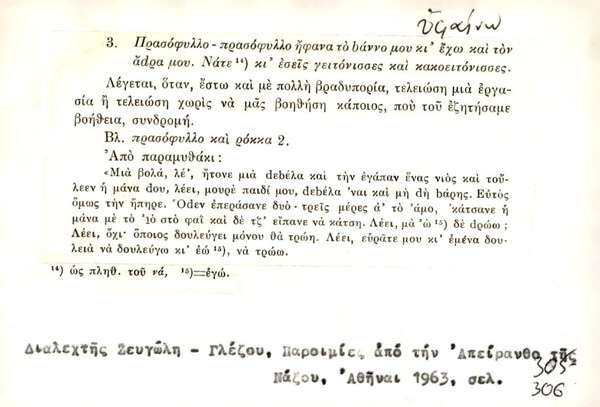 ὑφαίνω
3. Πρασόφυλλο - πρασόφυλλο ἤφανα τὸ bάννο μου κι᾽ ἔχω καὶ τὸν
ἄdρα μου. Νάτε ¹⁴) κι᾽ ἐσεῖς γειτόνισσες καὶ κακοειτόνισσες.
Λέγεται, ὅταν, ἔστω καὶ μὲ πολλὴ βραδυπορία, τελειώση μιὰ ἐργα-
σία ἢ τελειώση χωρὶς νὰ μᾶς βοηθήση κάποιος, ποὺ τοῦ ἐζητήσαμε
βοήθεια, συνδρομή.
Βλ. πρασόφυλλο καὶ ρόκκα 2.
Ἀπὸ παραμυθάκι:
«Μιὰ βολά, λέ᾽, ἤτονε μιὰ dεbέλα καὶ τὴν ἐγάπαν ἕνας νιὸς καὶ τοὔ-
λεεν ἡ μάνα dου, λέει, μουρὲ παιδί μου, dεbέλα ᾽ναι καὶ μὴ dὴ bάρης. Εὐτὸς
ὅμως τὴν ἤπηρε. Ὅdεν ἐπεράσανε δυὸ - τρεῖς μέρες ἀ᾽ τὸ ᾽άμο, ᾽κάτσανε ἡ
μάνα μὲ τὸ ᾽ιὸ στὸ φαῒ καὶ δὲ τζ᾽ εἴπανε νὰ κάτση. Λέει, μὰ ᾽ὼ ¹⁵) δὲ dρώω;
Λέει, ὄχι· ὅποιος δουλεύγει μόνου θὰ τρώη. Λέει, εὑρᾶτε μου κι᾽ ἐμένα δου-
λειὰ νὰ δουλεύγω κι᾽ ἐώ ¹⁵), νὰ τρώω.
¹⁴) ὡς πληθ. τοῦ νά, ¹⁵)=ἐγώ.
Διαλεχτῆς Ζευγώλη - Γλέζου, Παροιμίες ἀπό τήν Ἀπείρανθο τῆς
Νάξου, Ἀθῆναι 1963, σελ. 305
306